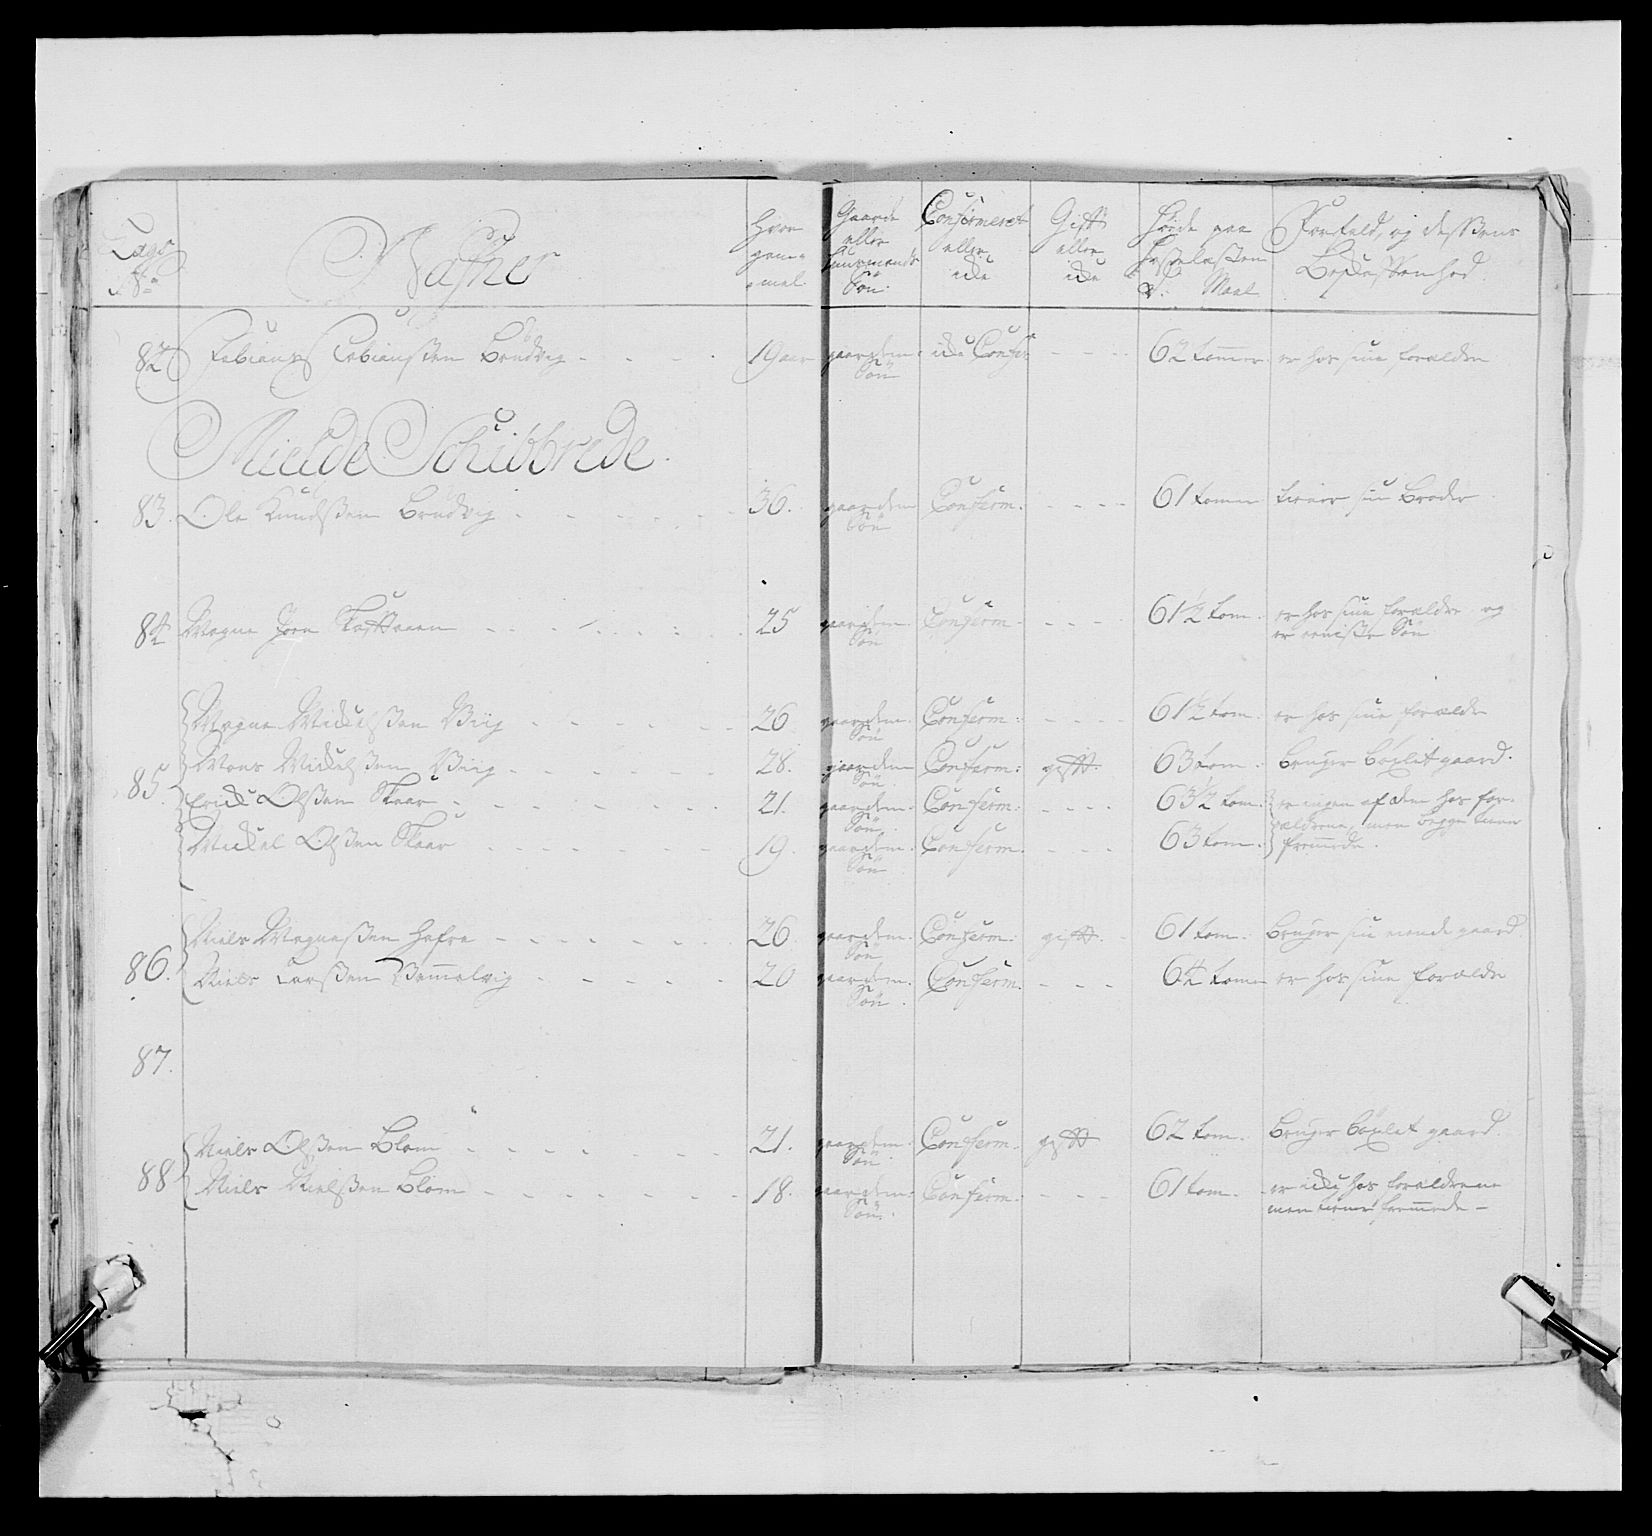 Lægs No
Nafner
Hvor gam= mel
Gaards eller Huusmands Søn.
Confirmeret eller icke
Gift eller icke
Høide paa Maal
Forhold, og desßens Beskaffenhed
82 Tobiansßen Brudvig 19 aar gaardem. Søn icke Confir 62 tommer er hos sine forældre
Mielde Schibbrede.
83. Ole Knudsßen Brudvig 36. gaardem Søn Conferm. 61 tommer tiener sin Broder
84 Magne 25 gaardem. Søn Conferm 61½ tom. er hos sine forældre og
er eeniste Søn
Magne Mickelsßen Viig 26 gaardem. Søn Conferm: 61½ tom. er hos sine forældre
85. Mons Mickelsßen Viig 28. gaardem Søn Conferm: gift. 63 tom. bruger bøxlet gaard.
Erick Olsßen Skaar 21. gaardem. Søn. Conferm: 63½ tom. er ingen af dem hos for=
ældrene, men begge tiener
Mickel Olsßen Skaar 19. gaardem. Søn Conferm. 63 tom. fremmede.
Niels Magnesßen Hafre 26. gaardem. Søn Conferm. gift. 61 tom. Bruger sin eiende gaard.
86. Niels Larsßen Vammelvig 20 gaardem. Søn. Conferm. 64 tomm er hos sine forældre
87.
Niels Olsßen Blom 21. gaardem. Søn Conferm. gift 62 tom. Bruger bøxlet gaard.
88 Niels Nielsßen Blom 18. gaardem. Søn. Conferm. 61 tom. er icke hos forældrene
men tiener fremmede –